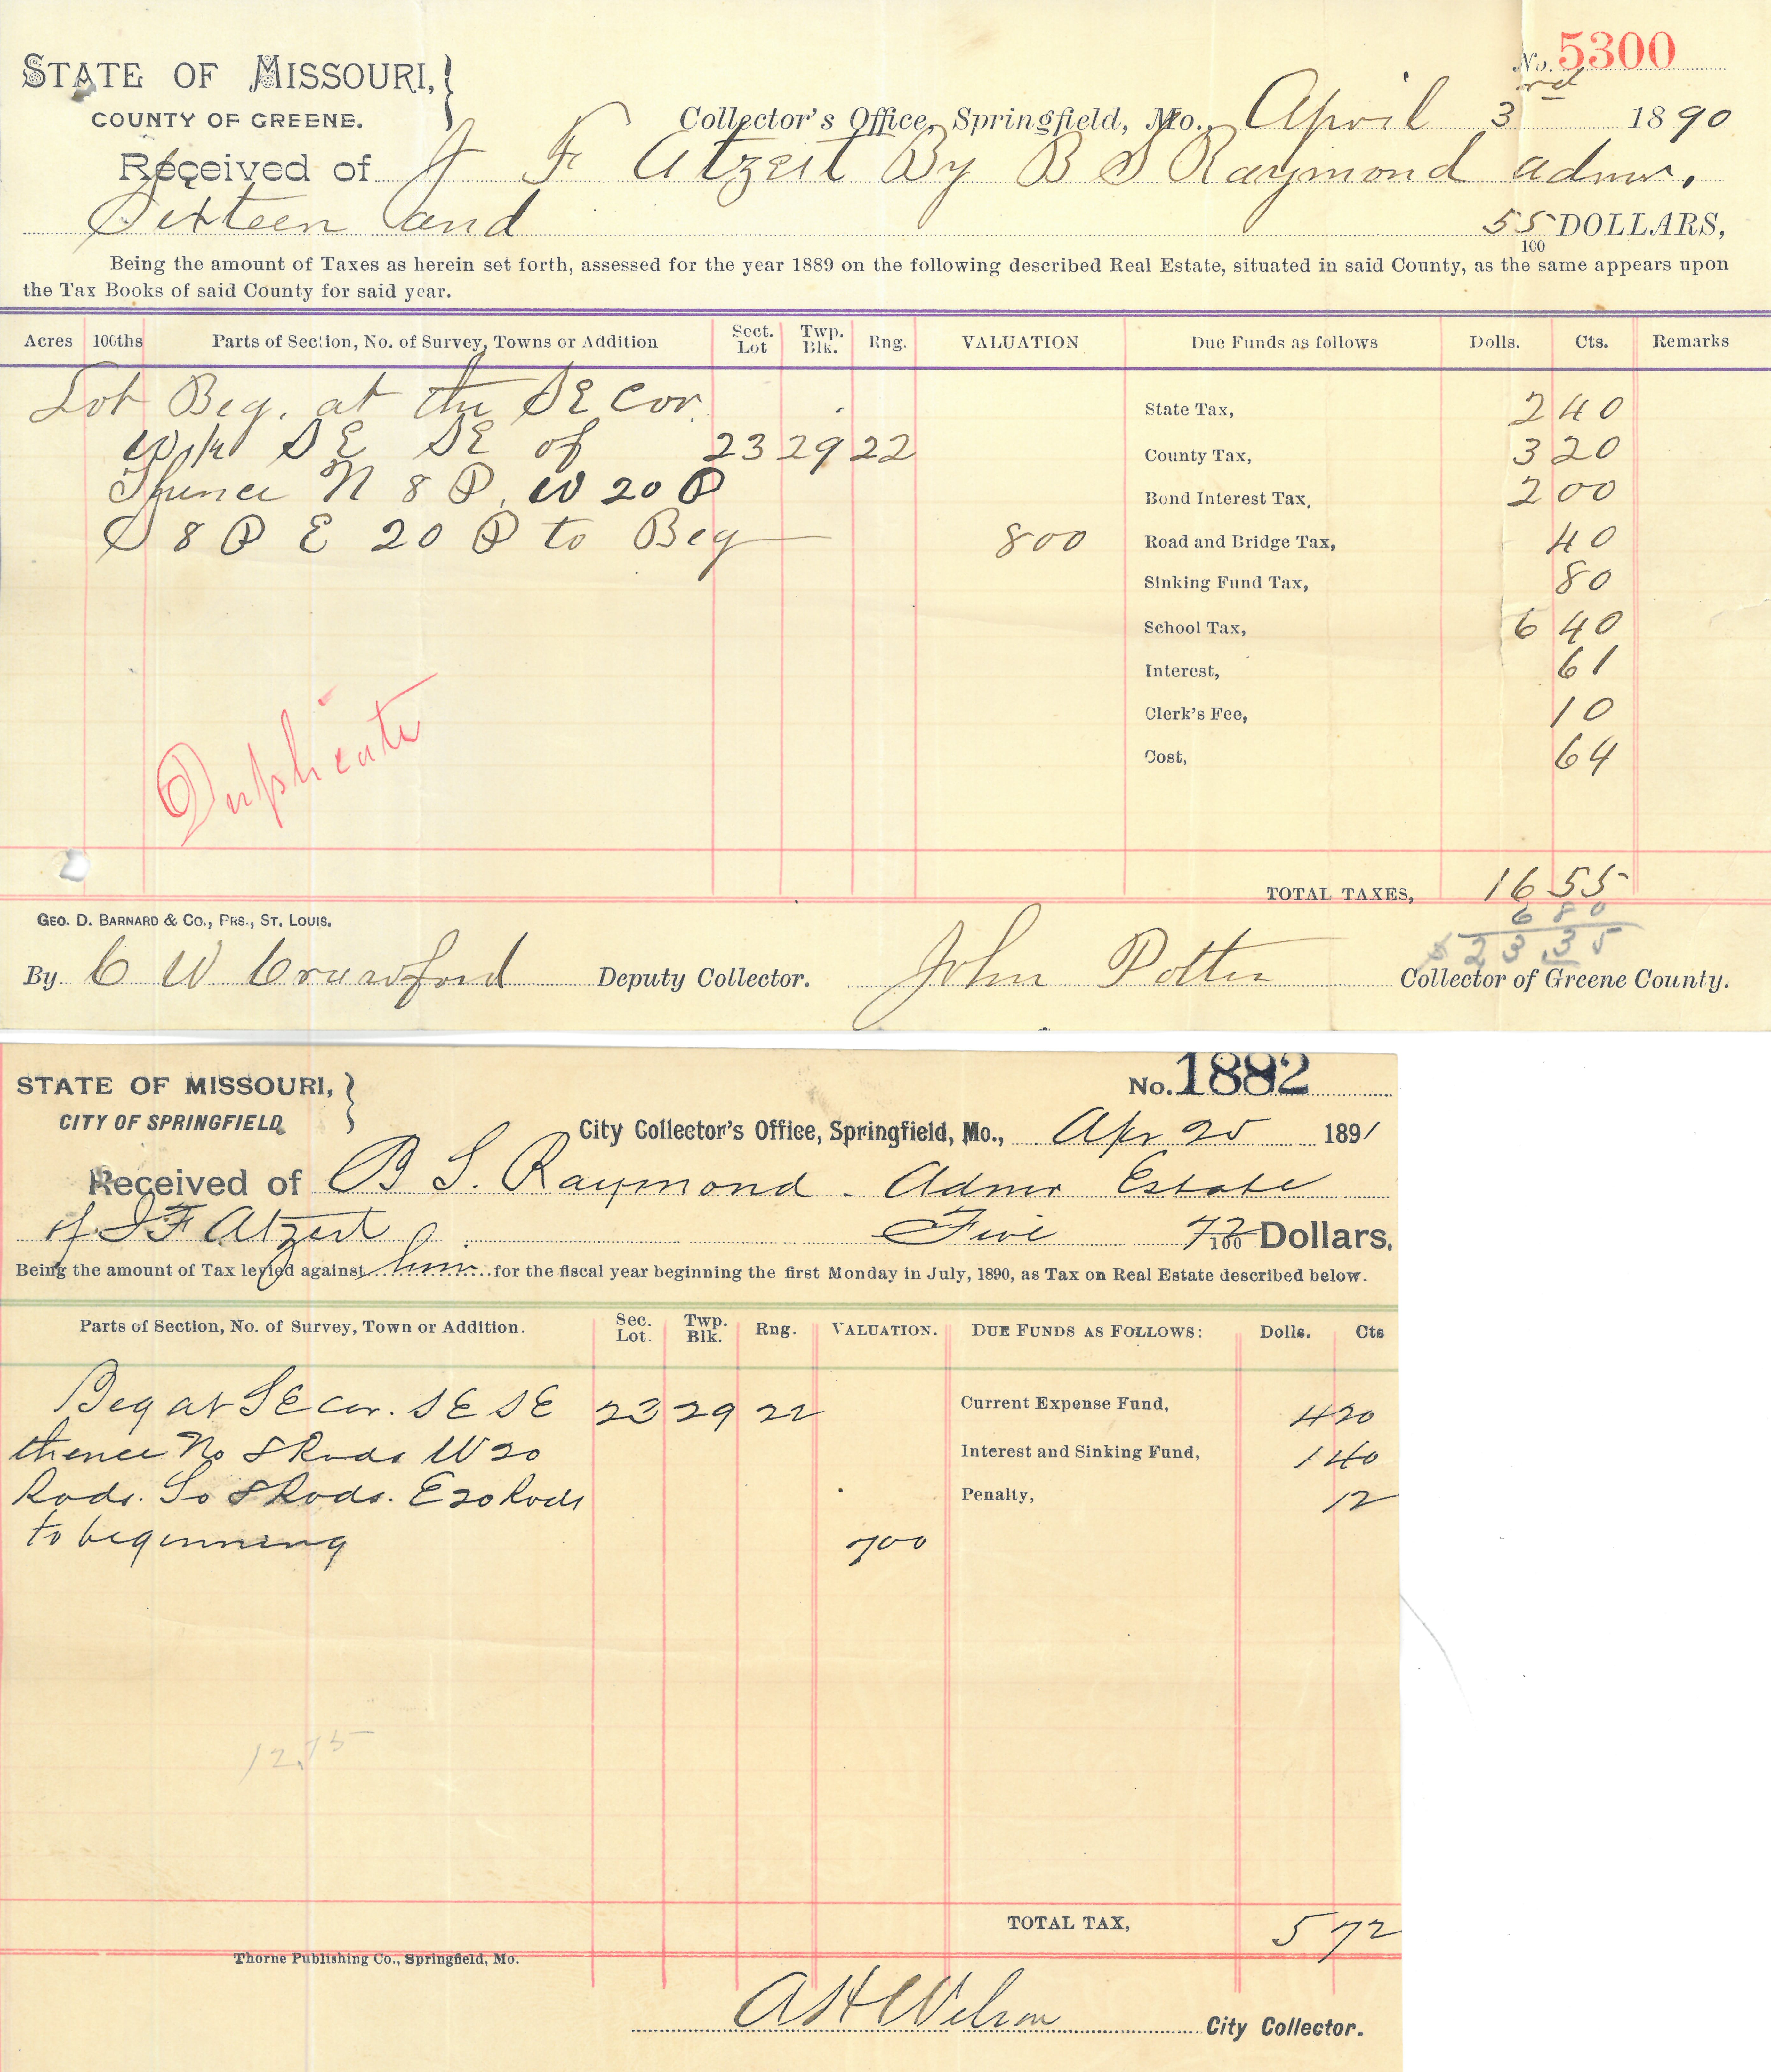 No. 5300
STATE OF MISSOURI,
COUNTY OF GREENE.
Collector's Office, Springfield, Mo., April 3rd 1890
Received of J F Atzert By B S Raymond admr.
Sixteen and 55/100 DOLLARS,
Being the amount of Taxes as herein set forth, assessed for the year 1889 on the following described Real Estate, situated in said County, as the same appears upon
the Tax Books of said County for said year.
Acres 100ths Parts of Section, No. of Survey, Towns or Addition Sect. Lot Twp. Blk. Rng. VALUATION Due Funds as follows Dolls. Cts. Remarks
Lot Beg. at the SE Cor. State Tax, 2 40
SE SE of 23 29 22 County Tax, 3 20
Thence N 8 P. W 20 P Bond Interest Tax, 2 00
S 8 P E 20 P to Beg 800 Road and Bridge Tax, 40
Sinking Fund Tax, 80
School Tax, 6 40
Interest, 61
Clerk's Fee, 10
Cost, 64
Duplicate
TOTAL TAXES, 16 55
6 80
$23.35
GEO. D. BARNARD & CO., PRS., ST. LOUIS.
By C W Crawford Deputy Collector. John Potter Collector of Greene County.
No. 1882
STATE OF MISSOURI,
CITY OF SPRINGFIELD
City Collector's Office, Springfield, Mo., Apr 25 1891
Received of B S. Raymond - Admr Estate
of J F Atzert Five 72/100 Dollars.
Being the amount of Tax levied against him for the fiscal year beginning the first Monday in July, 1890, as Tax on Real Estate described below.
Parts of Section, No. of Survey, Town or Addition. Sec. Lot. Twp. Blk. Rng. VALUATION. DUE FUNDS AS FOLLOWS: Dolls. Cts
Beg at SE cor. SE SE 23 29 22 Current Expense Fund, 4 20
thence No 8 Rods W 20 Interest and Sinking Fund, 1 40
Rods. So 8 Rods. E 20 Rods Penalty, 12
to beginning 700
12.75
TOTAL TAX, 5 72
Thorne Publishing Co., Springfield, Mo.
A H Wilson City Collector.